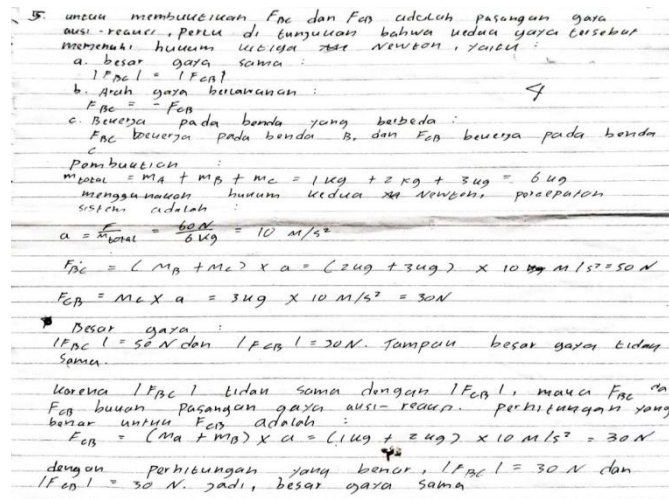 5. untuk membuktikan FBC dan FCB adalah pasangan gaya
aksi-reaksi, perlu di tunjukan bahwa kedua gaya tersebut
memenuhi hukum ketiga Newton, yaitu :
a. besar gaya sama :
|FBC| = |FCB|
b. Arah gaya berlawanan :
FBC = - FCB
4
c. Bekerja pada benda yang berbeda :
FBC bekerja pada benda B, dan FCB bekerja pada benda
C
Pembuktian :
mtotal = mA + mB + mC = 1 kg + 2 kg + 3 kg = 6 kg
menggunakan hukum kedua Newton, percepatan
sistem adalah :
a = F/mtotal = 60 N/6 kg = 10 m/s²
FBC = (MB + Mc) x a = (2kg + 3kg) x 10 m/s² = 50 N
FCB = Mc x a = 3kg x 10 m/s² = 30N
Besar gaya :
|FBC| = 50 N dan |FCB| = 30N. Tampak besar gaya tidak
sama.
Karena |FBC| tidak sama dengan |FCB|, maka FBC da
FCB bukan pasangan gaya aksi-reaksi. perhitungan yang
benar untuk FCB adalah :
FCB = (Ma + mB) x a = (1kg + 2kg) x 10 m/s² = 30N
dengan perhitungan yang benar, |FBC| = 30 N dan
|FCB| = 30 N. Jadi, besar gaya sama